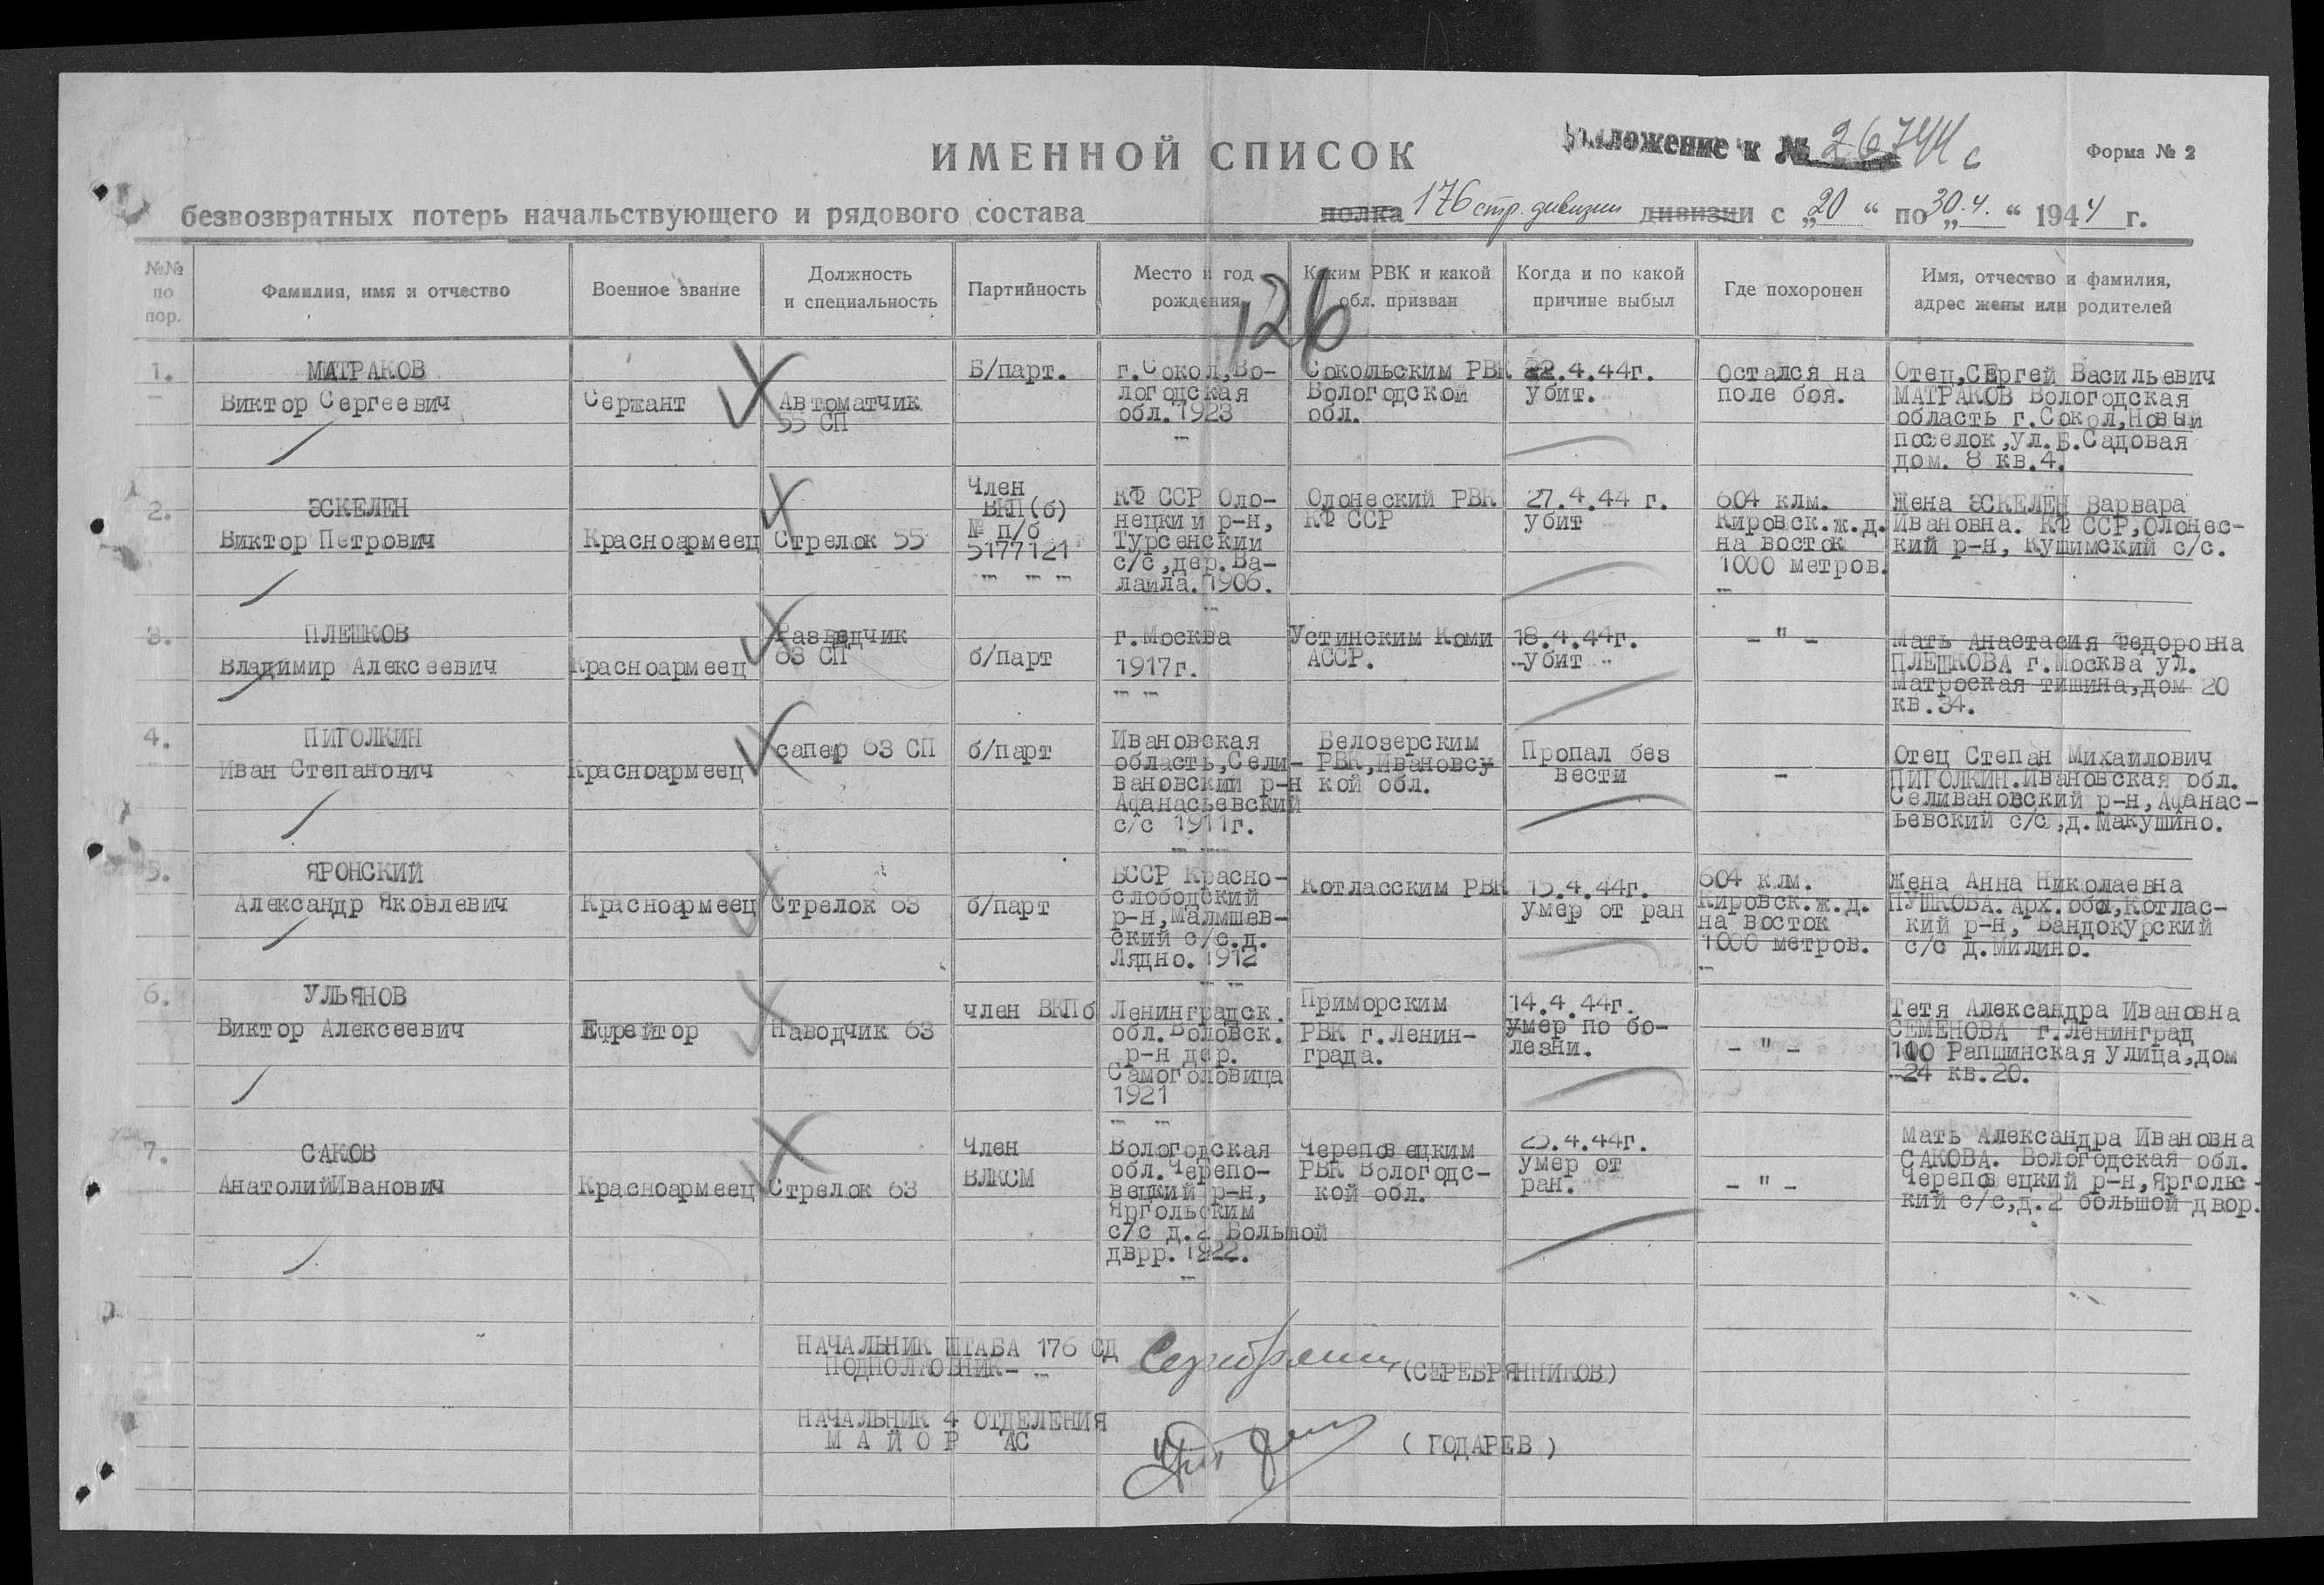 ИМЕННОЙ СПИСОК
Приложение к № 26744 с
Форма № 2
безвозвратных потерь начальствующего и рядового состава полка 176 стр. дивизии дивизии с „20“ по „30.4.“ 1944 г.
№№ по пор.
Фамилия, имя и отчество
Военное звание
Должность и специальность
Партийность
Место и год рождения
Каким РВК и какой обл. призван
Когда и по какой причине выбыл
Где похоронен
Имя, отчество и фамилия, адрес жены или родителей
126
1.
МАТРАКОВ
Виктор Сергеевич
Сержант
Автоматчик
55 СП
Б/парт.
г.Сокол,Во-
логодская
обл.1923
Сокольским РВК
Вологодской
обл.
22.4.44г.
убит.
Остался на
поле боя.
Отец,СЕргей Васильевич
МАТРАКОВ Вологодская
область г.Сокол,Новый
поселок,ул.Б.Садовая
дом. 8 кв.4.
2.
ЭСКЕЛЕН
Виктор Петрович
Красноармеец
Стрелок 55
Член
ВКП(б)
№ п/б
5177121
КФ ССР Оло-
нецкий р-н,
Турсенский
с/с,дер.Ва-
лаила.1906.
Олонеский РВК
КФ ССР
27.4.44 г.
убит
604 клм.
Кировск.ж.д.
на восток
1000 метров.
Жена ЭСКЕЛЕН Варвара
Ивановна. КФ ССР,Олонес-
кий р-н, Кушимский с/с.
3.
ПЛЕШКОВ
Владимир Алексеевич
Красноармеец
Разведчик
63 СП
б/парт
г.Москва
1917г.
Устинским Коми
АССР.
18.4.44г.
убит
- " -
Мать Анастасия Федоровна
ПЛЕШКОВА г.Москва ул.
Матроская тишина,дом 20
кв.34.
4.
ПИГОЛКИН
Иван Степанович
Красноармеец
сапер 63 СП
б/парт
Ивановская
область,Сели-
вановский р-н
Афанасьевский
с/с 1911г.
Белозерским
РВК,Ивановсу-
кой обл.
Пропал без
вести
-
Отец Степан Михайлович
ПИГОЛКИН.Ивановская обл.
Селивановский р-н,Афанас-
ьевский с/с,д.Макушино.
5.
ЯРОНСКИЙ
Александр Яковлевич
Красноармеец
Стрелок 63
б/парт
БССР Красно-
слободский
р-н,Малмшев-
ский с/с.д.
Лядно.1912
Котласским РВК
15.4.44г.
умер от ран
604 клм.
Кировск.ж.д.
на восток
1000 метров.
Жена Анна Николаевна
ПУШКОВА.Арх.обл,Котлас-
кий р-н, Вандокурский
с/с д.Милино.
6.
УЛЬЯНОВ
Виктор Алексеевич
Ефрейтор
Наводчик 63
член ВКПб
Ленинградск.
обл.Воловск.
р-н дер.
Самоголовица
1921
Приморским
РВК г.Ленин-
града.
14.4.44г.
умер по бо-
лезни.
- " -
Тетя Александра Ивановна
СЕМЕНОВА г.Ленинград
Рапшинская улица,дом
24 кв.20.
7.
САКОВ
АнатолийИванович
Красноармеец
Стрелок 63
Член
ВЛКСМ
Вологодская
обл.Черепо-
вецкий р-н,
Яргольским
с/с д.2 Большой
дврр.1922.
Череповецким
РВК Вологодс-
кой обл.
25.4.44г.
умер от
ран.
- " -
Мать Александра Ивановна
САКОВА. Вологодская обл.
Череповецкий р-н,Ярголюс-
кий с/с,д.2 большой двор.
НАЧАЛЬНИК ШТАБА 176 СД
ПОДПОЛКОВНИК-
(СЕРЕБРЯННИКОВ)
НАЧАЛЬНИК 4 ОТДЕЛЕНИЯ
МАЙОР АС
( ГОДАРЕВ )